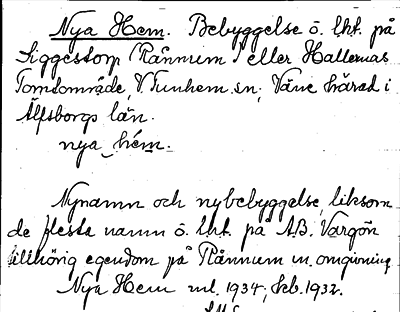 Nya Hem. Bebyggelse ö. lht. på
Siggestorp (Rånnum) eller Hallernas
Tomtområde, V Tunhem sn; Väne härad i
Älfsborgs län.
nya hém.
Nynamn och nybebyggelse, liksom
de flesta namn ö. lht. på A.B. Vargön
tillhörig egendom på Rånnum m. omgivning
Nya Hem ml. 1934; feb. 1932.